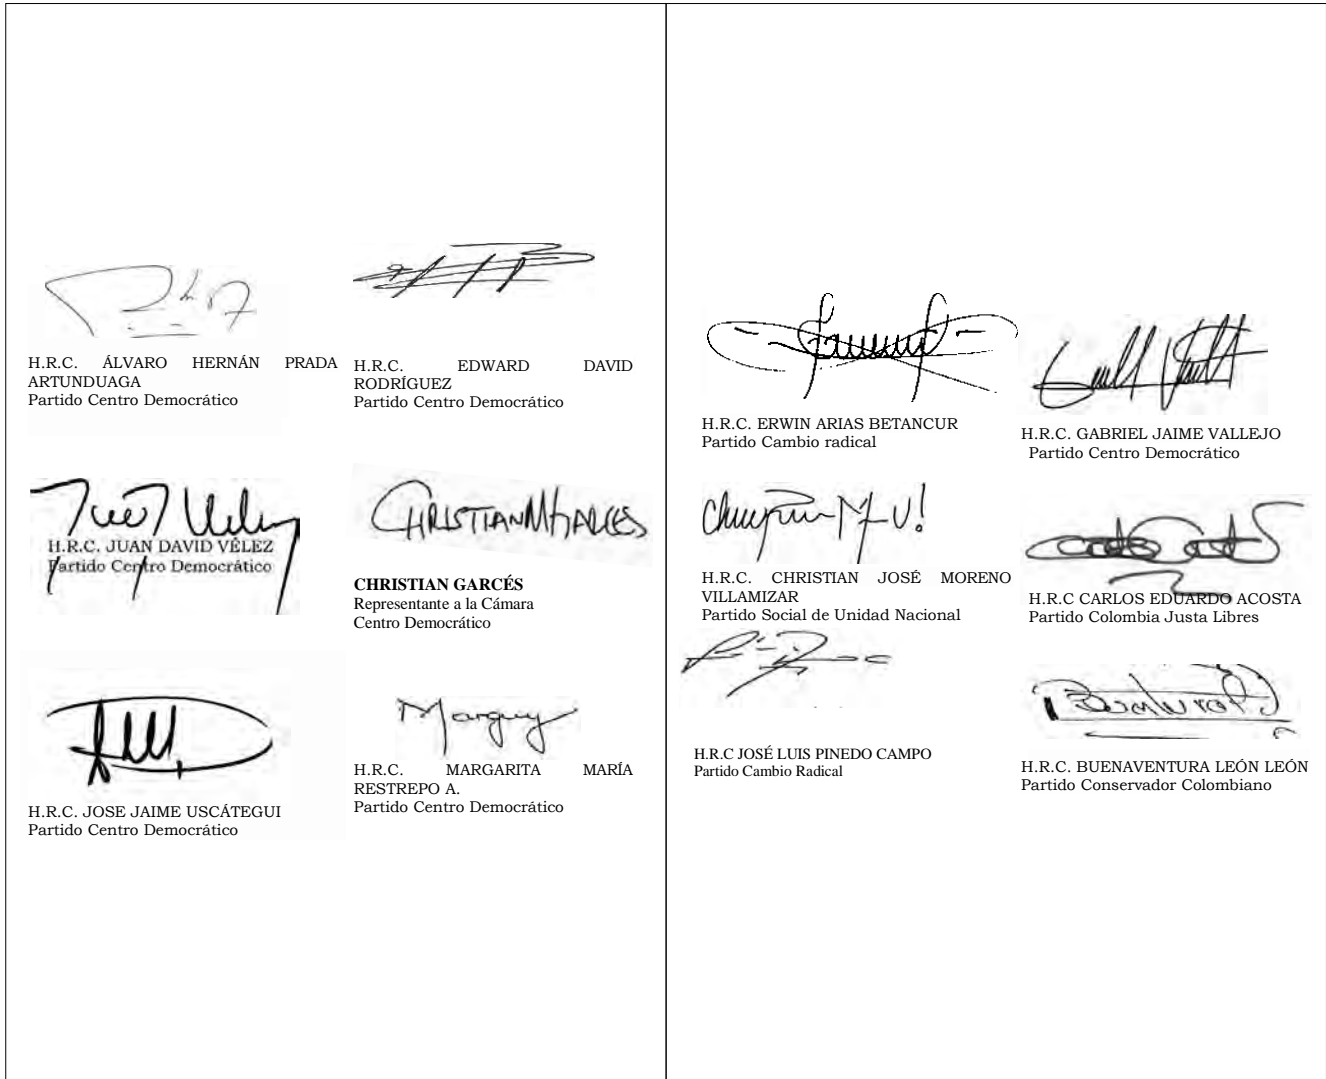 H.R.C. ÁLVARO HERNÁN PRADA
ARTUNDUAGA
Partido Centro Democrático
H.R.C. EDWARD DAVID
RODRÍGUEZ
Partido Centro Democrático
H.R.C. JUAN DAVID VÉLEZ
Partido Centro Democrático
CHRISTIAN GARCÉS
Representante a la Cámara
Centro Democrático
H.R.C. JOSE JAIME USCÁTEGUI
Partido Centro Democrático
Marguy
H.R.C. MARGARITA MARÍA
RESTREPO A.
Partido Centro Democrático
H.R.C. ERWIN ARIAS BETANCUR
Partido Cambio radical
H.R.C. GABRIEL JAIME VALLEJO
Partido Centro Democrático
H.R.C. CHRISTIAN JOSÉ MORENO
VILLAMIZAR
Partido Social de Unidad Nacional
H.R.C CARLOS EDUARDO ACOSTA
Partido Colombia Justa Libres
H.R.C JOSÉ LUIS PINEDO CAMPO
Partido Cambio Radical
H.R.C. BUENAVENTURA LEÓN LEÓN
Partido Conservador Colombiano